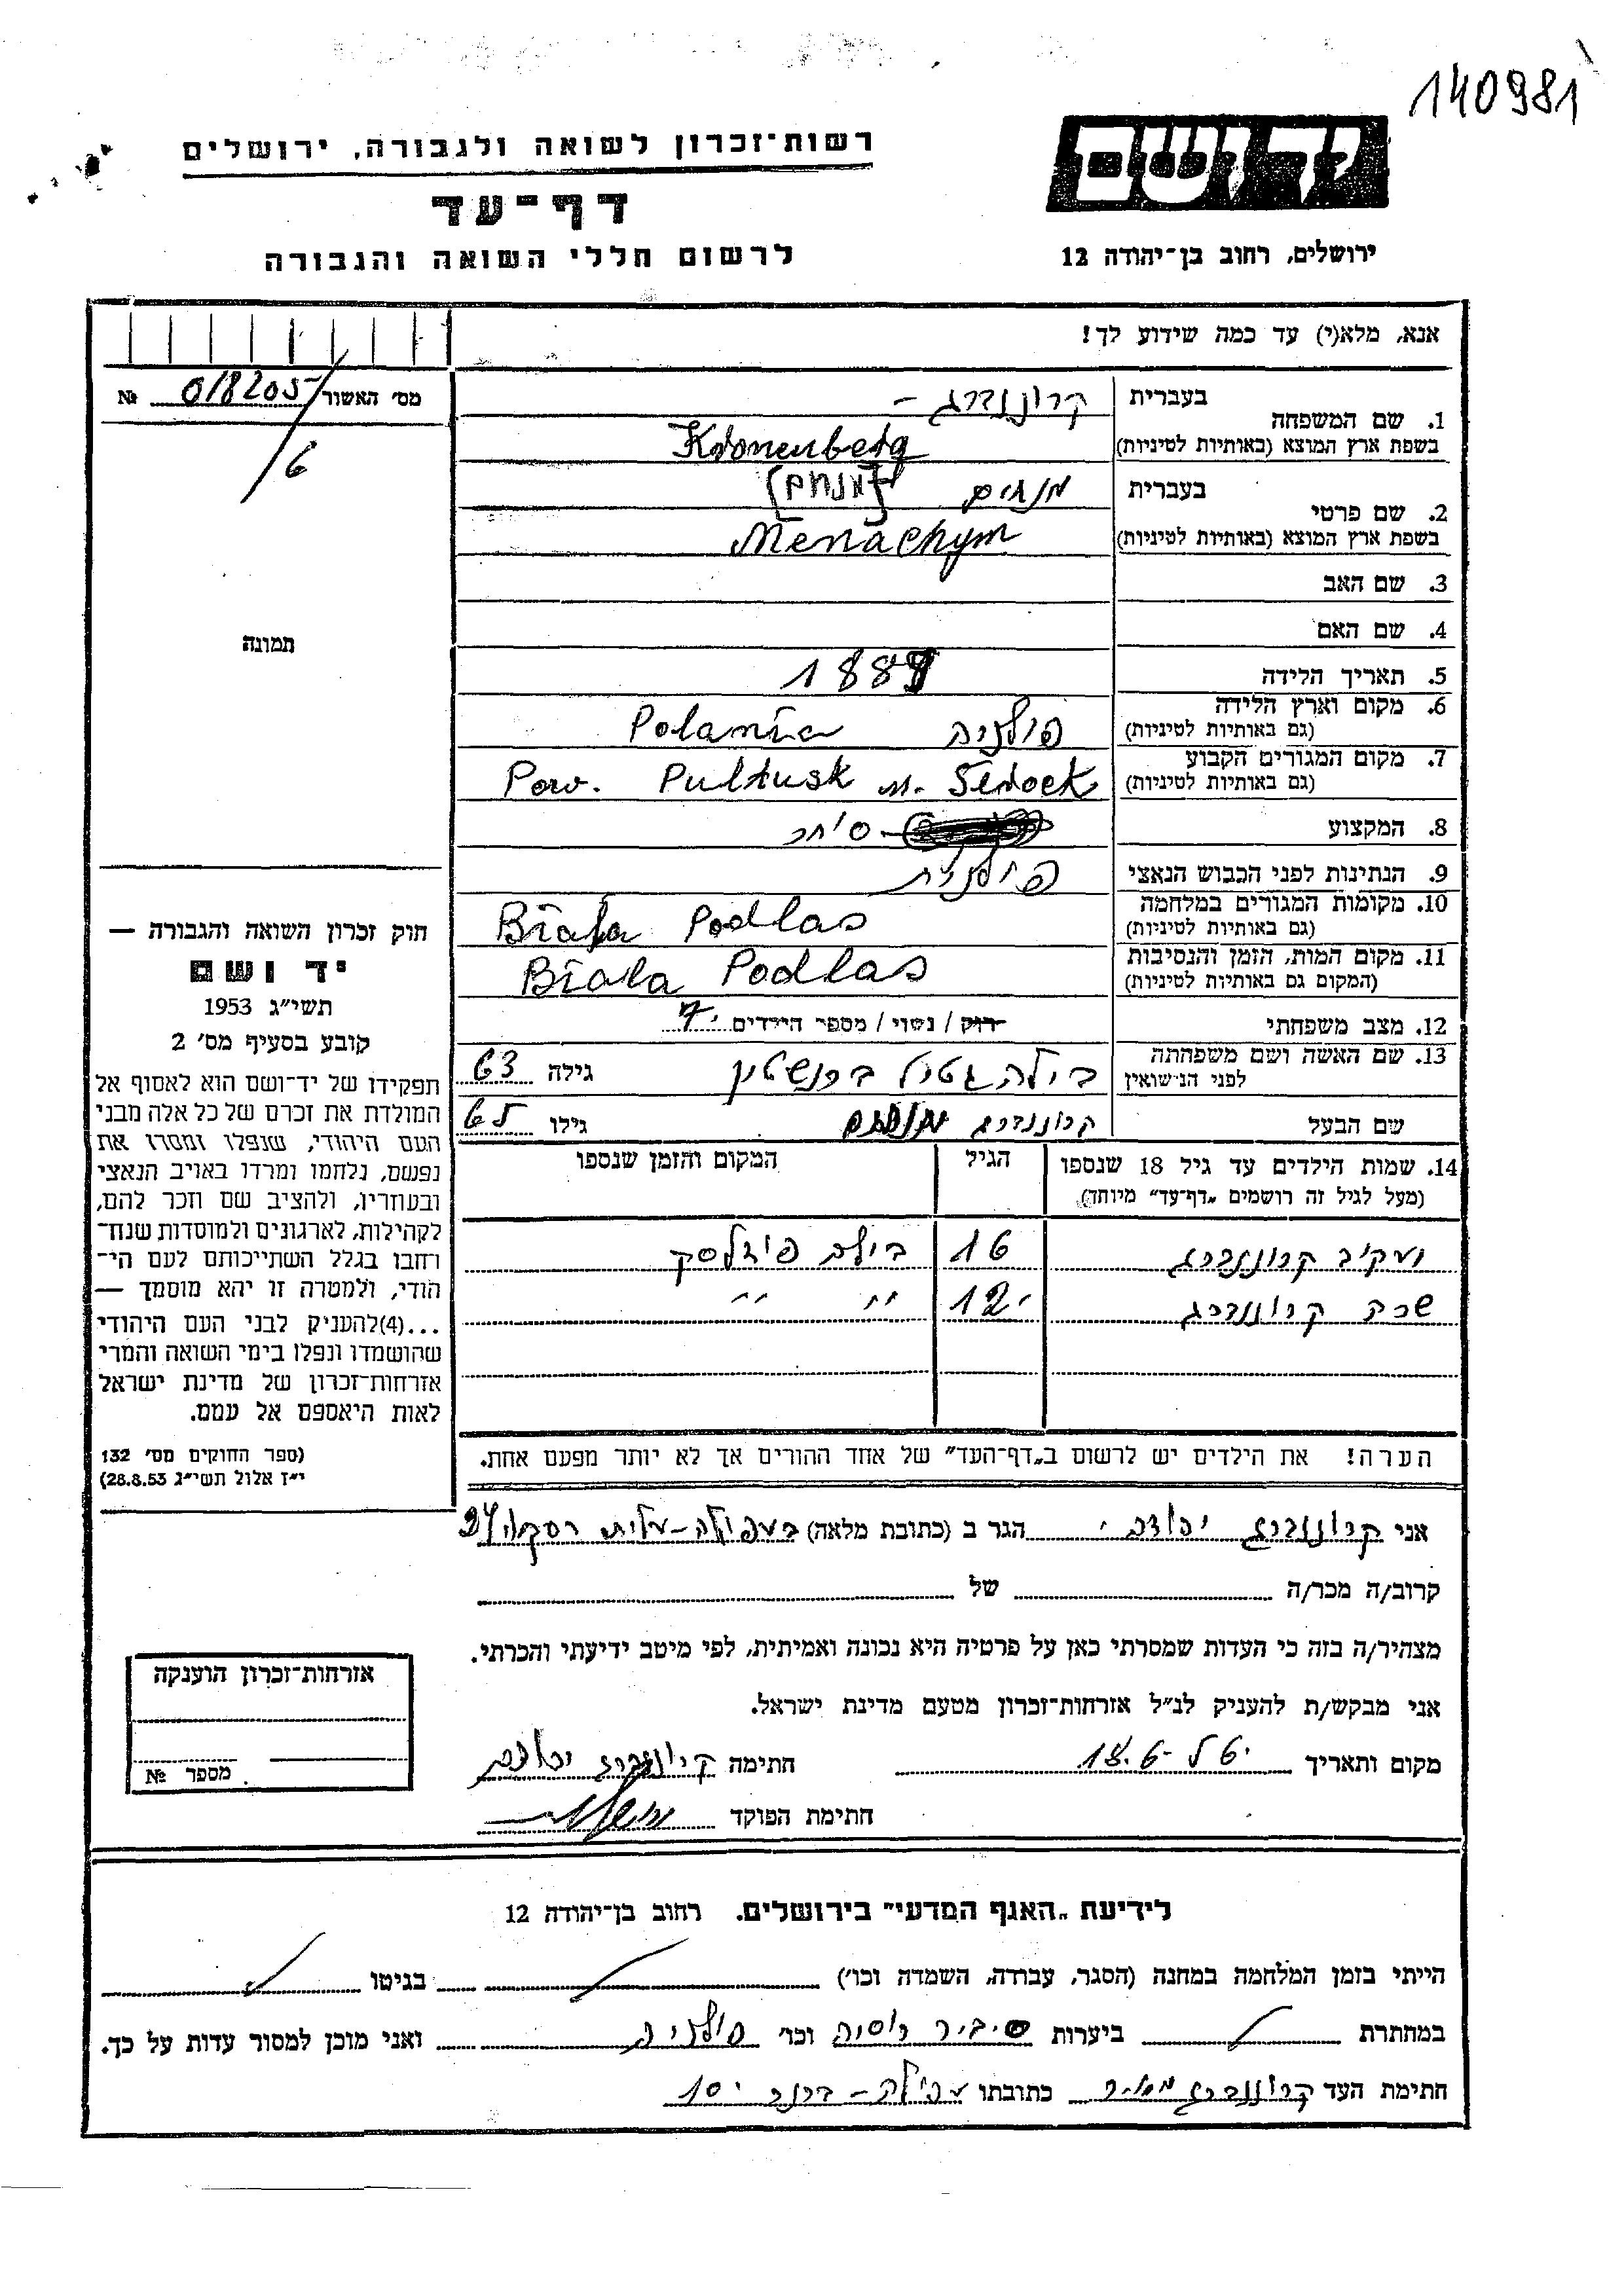 140981
יד ושם
רשות־זכרון לשואה ולגבורה, ירושלים
דף־עד
לרשום חללי השואה והגבורה
ירושלים, רחוב בן־יהודה 12
אנא, מלא(י) עד כמה שידוע לך!
מס' האשור 018205 №
6
תמונה
1. שם המשפחה
בעברית קרוננברג -
בשפת ארץ המוצא (באותיות לטיניות) Kronenberg
2. שם פרטי
בעברית [מנחם]
בשפת ארץ המוצא (באותיות לטיניות) Menachym
3. שם האב
4. שם האם
5. תאריך הלידה
6. מקום וארץ הלידה (גם באותיות לטיניות) פולניה Polania
7. מקום המגורים הקבוע (גם באותיות לטיניות) Pow. Pułtusk m. Serock
8. המקצוע סוחר
9. הנתינות לפני הכבוש הנאצי פולנית
10. מקומות המגורים במלחמה (גם באותיות לטיניות) Biała Podlas
11. מקום המות, הזמן והנסיבות (המקום גם באותיות לטיניות) Biała Podlas
12. מצב משפחתי רוק / נשוי / מספר הילדים 7
13. שם האשה ושם משפחתה לפני הנישואין ברנשטין גילה 63
שם הבעל קרוננברג מנחם גילו 65
14. שמות הילדים עד גיל 18 שנספו (מעל לגיל זה רושמים „דף־עד” מיוחד) הגיל המקום והזמן שנספו
יעקב קרוננברג 16 בילה פודלסק
שרה קרוננברג 12 " "
הערה! את הילדים יש לרשום ב„דף־העד” של אחד ההורים אך לא יותר מפעם אחת.
חוק זכרון השואה והגבורה —
יד ושם
תשי״ג 1953
קובע בסעיף מס' 2
תפקידו של יד־ושם הוא לאסוף אל
המולדת את זכרם של כל אלה מבני
העם היהודי, שנפלו ומסרו את
נפשם, נלחמו ומרדו באויב הנאצי
ובעוזריו, ולהציב שם וזכר להם,
לקהילות, לארגונים ולמוסדות שנח־
רחבו בגלל השתייכותם לעם הי־
הודי, ולמטרה זו יהא מוסמך —
...(4)להעניק לבני העם היהודי
שהושמדו ונפלו בימי השואה והמרי
אזרחות־זכרון של מדינת ישראל
לאות היאספם אל עמם.
(ספר החוקים מס' 132
י״ז אלול תשי״ג 28.8.53)
אני קרוננברג יהודה הגר ב (כתובת מלאה) בעפולה-עלית 24
קרוב/ה מכר/ה של
מצהיר/ה בזה כי העדות שמסרתי כאן על פרטיה היא נכונה ואמיתית, לפי מיטב ידיעתי והכרתי.
אני מבקש/ת להעניק לנ״ל אזרחות־זכרון מטעם מדינת ישראל.
מקום ותאריך חתימה קרוננברג יהודה
חתימת הפוקד
אזרחות־זכרון הוענקה
מספר №
לידיעת „האגף המדעי” בירושלים. רחוב בן־יהודה 12
הייתי בזמן המלחמה במחנה (הסגר, עבודה, השמדה וכו') בגיטו
במחתרת ביערות סיביר רוסיה וכו' פולניה ואני מוכן למסור עדות על כך.
חתימת העד קרוננברג כתובתו עפולה -